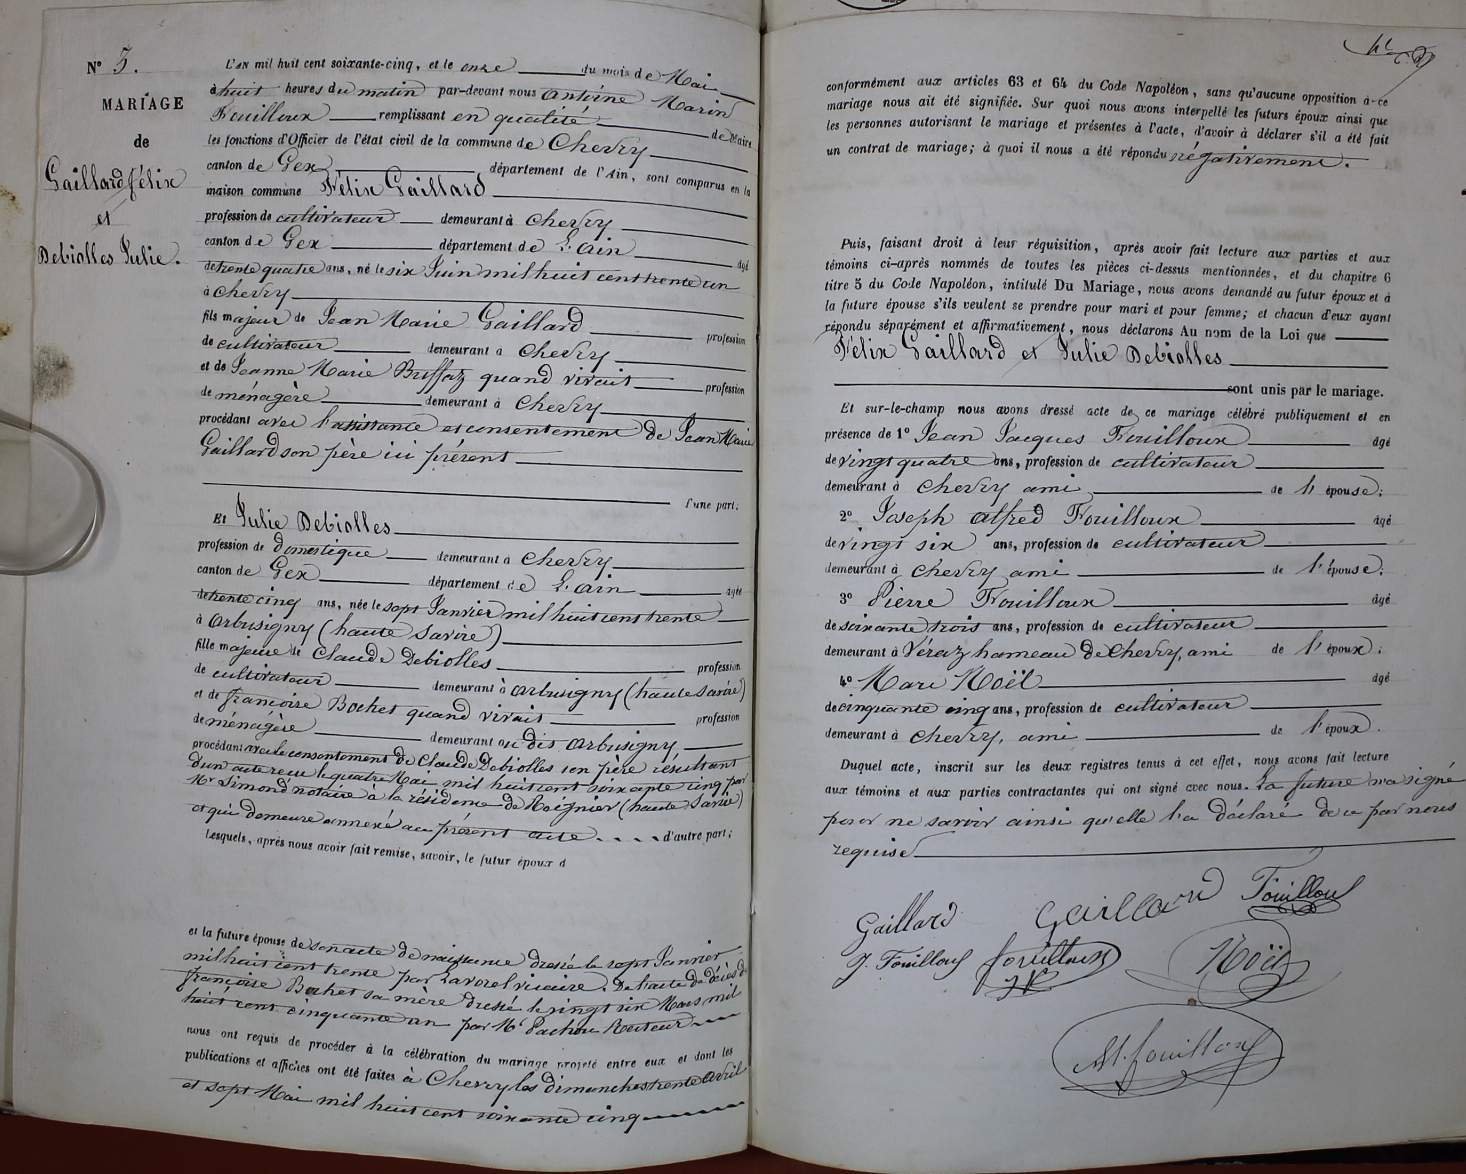 N° 3.
MARIAGE
de
Gaillard félix
et
Debiolles Julie.
L'AN mil huit cent soixante-cinq, et le onze du mois de Mai
à huit heures du matin par-devant nous Antoine Marin
Fouilloux remplissant en qualité de Maire
les fonctions d'Officier de l'état civil de la commune de Chevry
canton de Gex département de l'Ain, sont comparus en la
maison commune Félix Gaillard
profession de cultivateur demeurant à Chevry
canton de Gex département de L'ain agé
de trente quatre ans, né le six Juin mil huit cent trente un
à Chevry
fils majeur de Jean Marie Gaillard profession
de cultivateur demeurant à Chevry
et de Jeanne Marie Buffaz quand vivait profession
de ménagère demeurant à Chevry
procédant avec l'assistance et consentement de Jean Marie
Gaillard son père ici présent
d'une part;
Et Julie Debiolles
profession de domestique demeurant à Chevry
canton de Gex département de L'ain agée
de trente cinq ans, née le sept Janvier mil huit cent trente
à Arbusigny (haute Savoie)
fille majeure de Claude Debiolles profession
de cultivateur demeurant à Arbusigny (haute Savoie)
et de françoise Bochet quand vivait profession
de ménagère demeurant au dit Arbusigny
procédant avec le consentement de Claude Debiolles son père résultant
d'un acte reçu le quatre Mai mil huit cent soixante cinq par
Me Simond notaire à la résidence de Reignier (haute Savoie)
et qui demeure annexé au présent acte d'autre part;
Lesquels, après nous avoir fait remise, savoir, le futur époux d
et la future épouse de son acte de naissance dressé le sept Janvier
mil huit cent trente par vicaire, de l'acte de décès de
françoise Bochet sa mère dressé le vingt six Mars mil
huit cent cinquante un par Mr Pachou Recteur
nous ont requis de procéder à la célébration du mariage projeté entre eux et dont les
publications et affiches ont été faites à Chevry les dimanches trente Avril
et sept Mai mil huit cent soixante cinq
conformément aux articles 63 et 64 du Code Napoléon, sans qu'aucune opposition à ce
mariage nous ait été signifiée. Sur quoi nous avons interpellé les futurs époux ainsi que
les personnes autorisant le mariage et présentes à l'acte, d'avoir à déclarer s'il a été fait
un contrat de mariage; à quoi il nous a été répondu négativement.
Puis, faisant droit à leur réquisition, après avoir fait lecture aux parties et aux
témoins ci-après nommés de toutes les pièces ci-dessus mentionnées, et du chapitre 6
titre 5 du Code Napoléon, intitulé Du Mariage, nous avons demandé au futur époux et à
la future épouse s'ils veulent se prendre pour mari et pour femme; et chacun d'eux ayant
répondu séparément et affirmativement, nous déclarons Au nom de la Loi que
Félix Gaillard et Julie Debiolles
sont unis par le mariage.
Et sur-le-champ nous avons dressé acte de ce mariage célébré publiquement et en
présence de 1° Jean Jacques Fouilloux agé
de vingt quatre ans, profession de cultivateur
demeurant à Chevry ami de l'épouse;
2° Joseph Alfred Fouilloux agé
de vingt six ans, profession de cultivateur
demeurant à Chevry ami de l'épouse;
3° Pierre Fouilloux agé
de soixante trois ans, profession de cultivateur
demeurant à Véraz hameau de Chevry, ami de l'époux;
4° Marc Noël agé
de cinquante cinq ans, profession de cultivateur
demeurant à Chevry, ami de l'époux.
Duquel acte, inscrit sur les deux registres tenus à cet effet, nous avons fait lecture
aux témoins et aux parties contractantes qui ont signé avec nous. La future n'a signé
pour ne savoir ainsi qu'elle l'a déclaré de ce par nous
requise
Gaillard Gaillard Fouilloux
J. Fouilloux fouilloux Noël
M. fouilloux